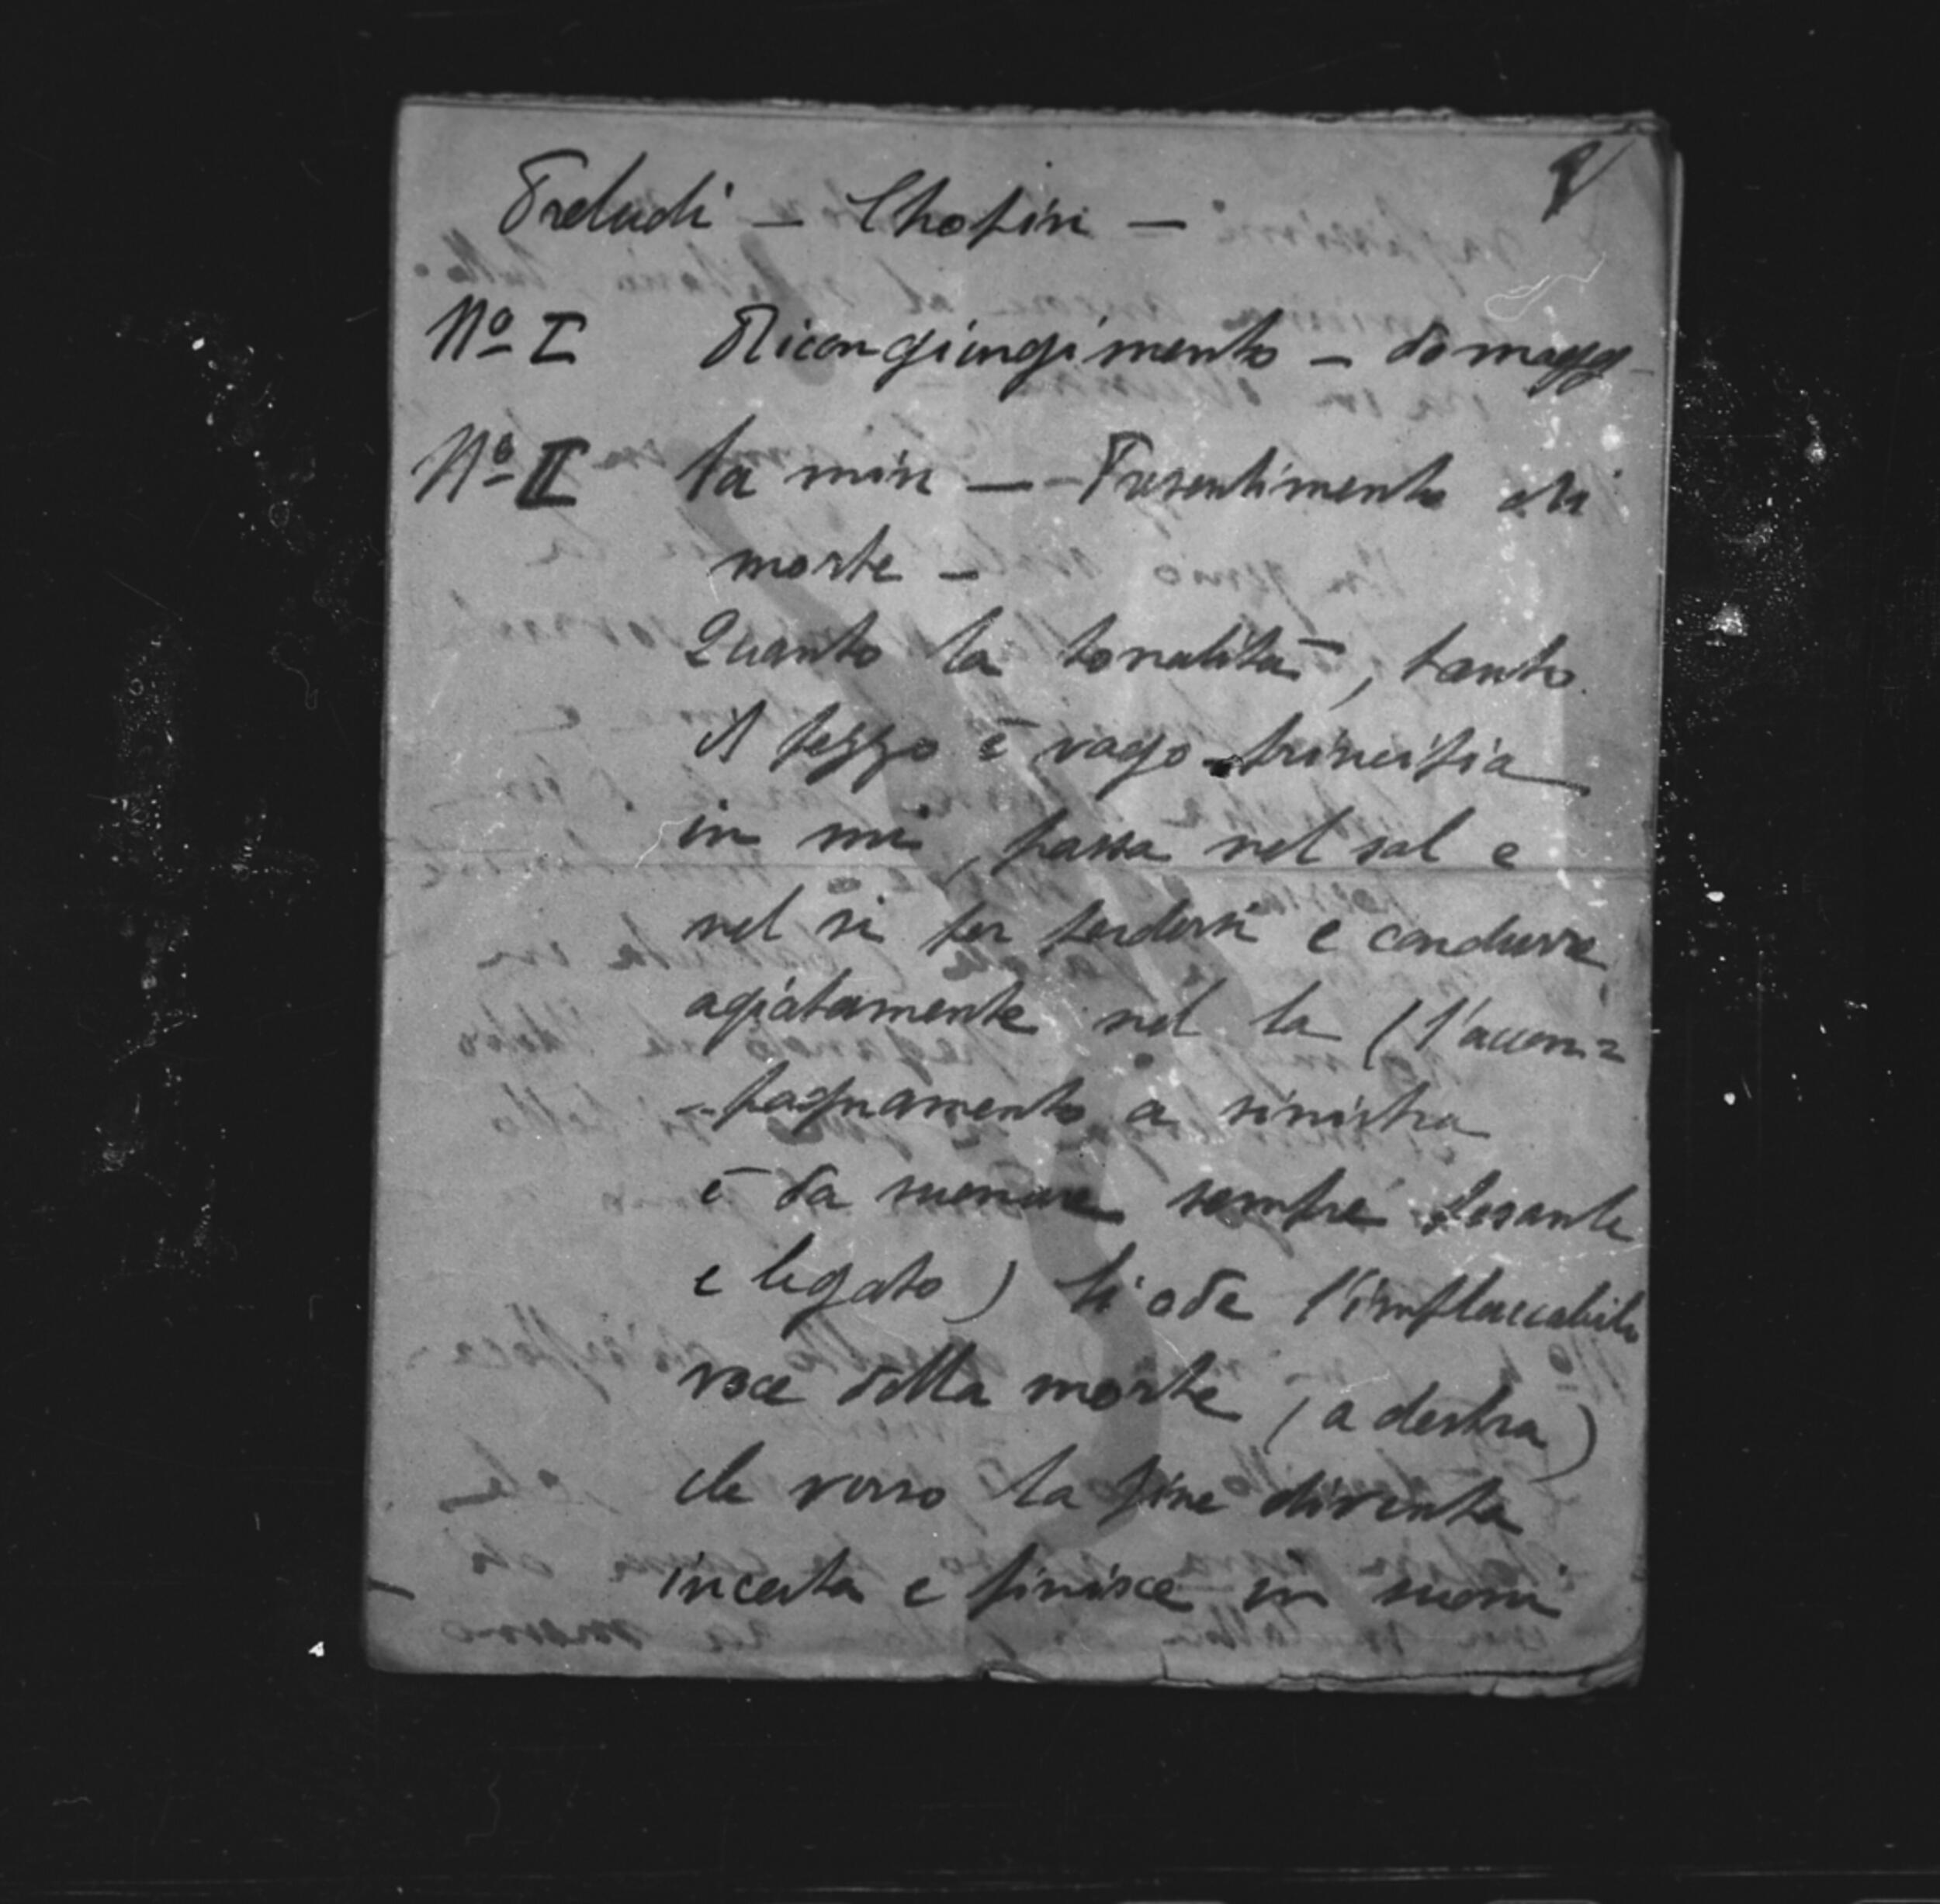 Preludi – Chopin –
Nº I Ricongiungimento – do magg
Nº II la min – Presentimento di
morte –
Quanto la tonalità, tanto
il pezzo è vago – principia
in mi, passa nel sol e
nel si per perdersi e condurre
agiatamente nel la (l'accom=
=pagnamento a sinistra
è da suonare sempre pesante
e legato) Si ode l'implaccabile
voce della morte (a destra)
che verso la fine diventa
incerta e finisce in suoni